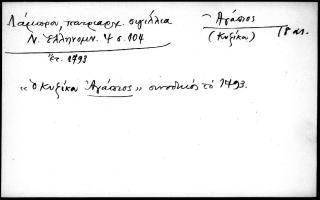 Λάμπρου, πατριαρχ. σιγίλλια
Ν. Ἑλληνομν. 4 σ. 104
ἔτ. 1793
Ἀγάπιος
(Κυζίκου)
18 αι.
«Ὁ Κυζίκου Ἀγάπιος» συνοδικὸς τὸ 1793.